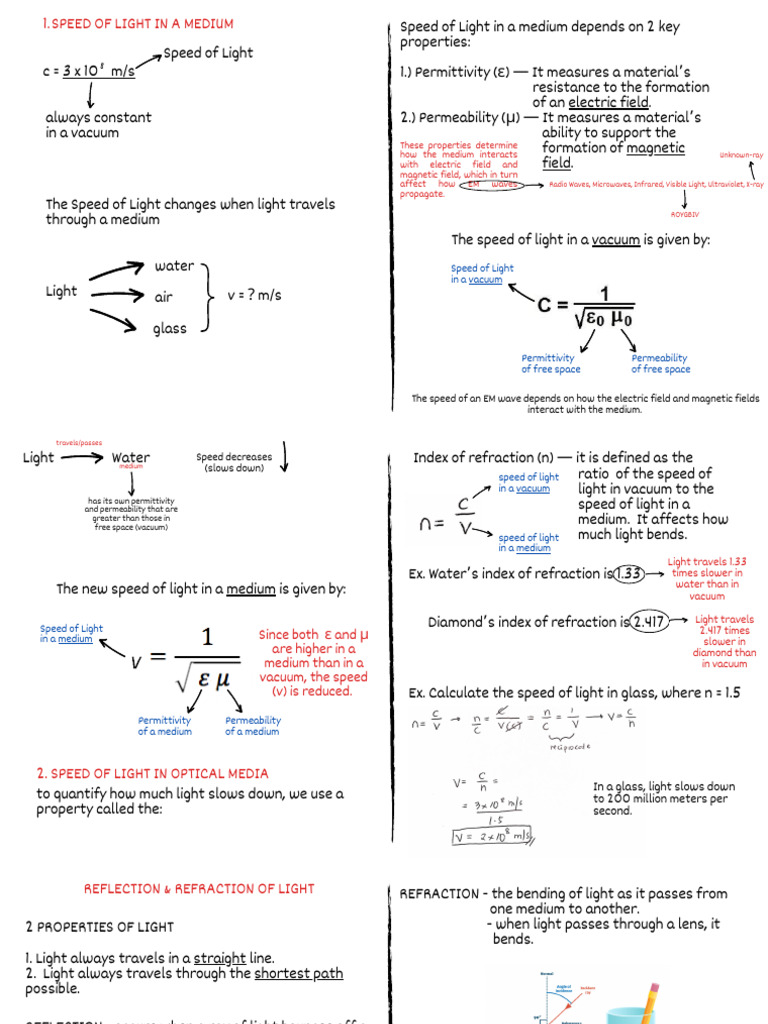 1. SPEED OF LIGHT IN A MEDIUM
Speed of Light
c = 3 x 10⁸ m/s
always constant
in a vacuum
The Speed of Light changes when light travels
through a medium
Light
water
air
glass
v = ? m/s
Speed of Light in a medium depends on 2 key
properties:
1.) Permittivity (ε) — It measures a material's
resistance to the formation
of an electric field.
2.) Permeability (μ) — It measures a material's
ability to support the
formation of magnetic
field.
These properties determine
how the medium interacts
with electric field and
magnetic field, which in turn
affect how EM waves
propagate.
Unknown-ray
Radio Waves, Microwaves, Infrared, Visible Light, Ultraviolet, X-ray
ROYGBIV
The speed of light in a vacuum is given by:
Speed of Light
in a vacuum
C = 1 / √ε₀ μ₀
Permittivity
of free space
Permeability
of free space
The speed of an EM wave depends on how the electric field and magnetic fields
interact with the medium.
travels/passes
Light
Water
medium
Speed decreases
(slows down)
has its own permittivity
and permeability that are
greater than those in
free space (vacuum)
The new speed of light in a medium is given by:
Speed of Light
in a medium
v = 1 / √ε μ
Since both ε and μ
are higher in a
medium than in a
vacuum, the speed
(v) is reduced.
Permittivity
of a medium
Permeability
of a medium
2. SPEED OF LIGHT IN OPTICAL MEDIA
to quantify how much light slows down, we use a
property called the:
Index of refraction (n) — it is defined as the
ratio of the speed of
light in vacuum to the
speed of light in a
medium. It affects how
much light bends.
speed of light
in a vacuum
n = c / v
speed of light
in a medium
Ex. Water's index of refraction is 1.33
Light travels 1.33
times slower in
water than in
vacuum
Diamond's index of refraction is 2.417
Light travels
2.417 times
slower in
diamond than
in vacuum
Ex. Calculate the speed of light in glass, where n = 1.5
n = c/v → n/c = c/v(c) = n/c = 1/v → v = c/n
reciprocate
v = c/n =
= 3 x 10⁸ m/s / 1.5
v = 2 x 10⁸ m/s
In a glass, light slows down
to 200 million meters per
second.
REFLECTION & REFRACTION OF LIGHT
2 PROPERTIES OF LIGHT
1. Light always travels in a straight line.
2. Light always travels through the shortest path
possible.
REFRACTION - the bending of light as it passes from
one medium to another.
- when light passes through a lens, it
bends.
Normal
Angle of
incidence